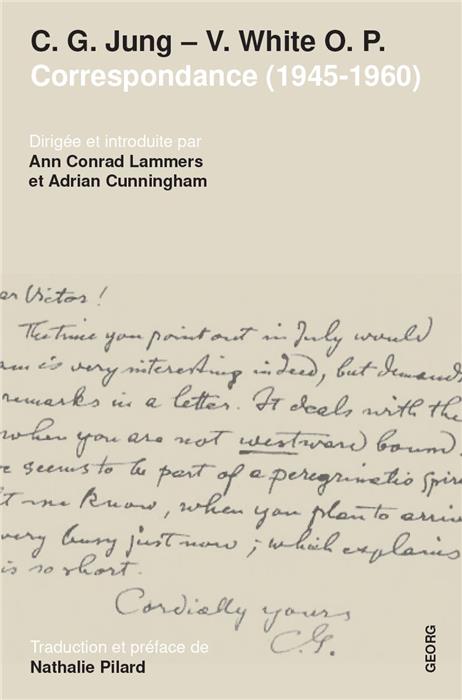 C. G. Jung – V. White O. P.
Correspondance (1945-1960)
Dirigée et introduite par
Ann Conrad Lammers
et Adrian Cunningham
ar Victor!
The time you point out in July would
am is very interesting indeed, but demands
remarks in a letter. It deals with the
when you are not westward bound.
e seems to be part of a peregrinatio spiri
t me know, when you plan to arrive
very busy just now; which explains
is so short.
Cordially yours
C.G.
Traduction et préface de
Nathalie Pilard
GEORG